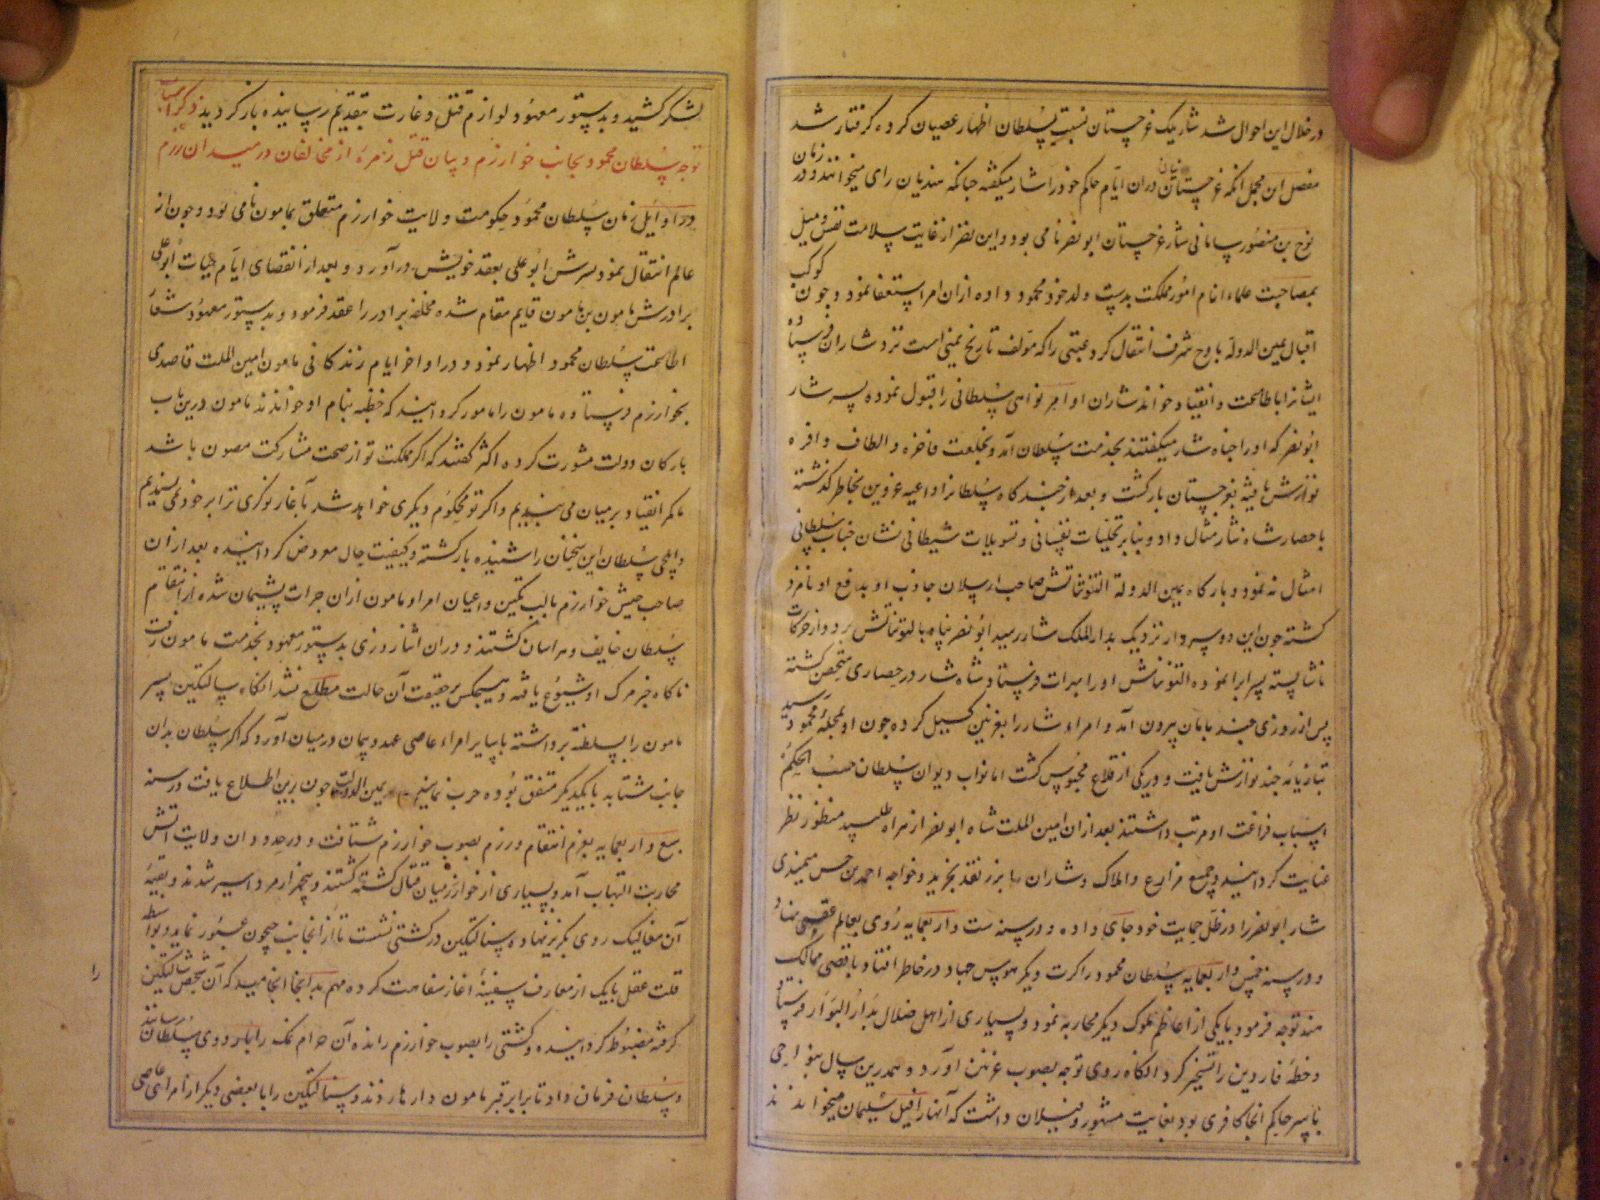 در خلال این احوال شد شار ملک غرجستان نسبت بسلطان اظهار عصیان کرده کرفتار شد
مفصل این مجمل انکه غرجستانیان دران ایام حاکم خود را شار میکفته جنانکه هندیان رای میخوانند و در زمان
نوح بن منصور سامانی شار غرجستان ابو نصر نامی بود و این نصر از غایت سلامت نفس و میل
بمصاحبت علماء انام امور مملکت بدست ولد خود محمود داده ازان امر استعفا نمود و جون کوکب
اقبال یمین الدوله باوج شرف انتقال کرد عتبی را که مؤلف تاریخ یمینی است نزد شاران فرستاد و
ایشانرا باطاعت و انقیاد خواند شاران اوامر و نواهی سلطانی را قبول نموده پسر شار
ابو نصر که او را شاه شار میکفتند بخدمت سلطان آمد و بخلعت فاخره و الطاف وافره
نوازش یافته بغرجستان بازکشت و بعد از جند کاه سلطانرا داعیه غزوی بخاطر کذشته
باحضار شاه شار مثال داد و بنابر تخلیات نفسانی و تسویلات شیطانی نشان جناب سلطانی
امتثال نه نمود و بارکاه یمین الدوله التونتاش حاجب ارسلان جاذب او بدفع او نامزد
کشته جون این دو سردار نزدیک بدار الملک شار رسید ابو نصر پناه بالتونتاش برد و از حرکات
ناشایسته پسر ابرا نموده التونتاش او را بهرات فرستاد شاه شار در حصاری متحصن کشته
پس از روزی جند بامان بیرون آمد و امراء شار را بغزنین کسیل کرده جون او بمحله محمود رسید
تبازیانه جند نوازش یافت و در یکی از قلاع محبوس کشت اما نواب دیوان سلطان حسب الحکم
اسباب فراغت او مرتب داشتند بعد ازان امین الملت شاه ابو نصر از هراه طلبید منظور نظر
عنایت کردانید و جمیع مزارع و املاک شاران را بزر نقد بخرید و خواجه احمد بن حسن میمندی
شار ابو نصر را در ظل حمایت خود جای داده و در سنه ست و اربعمایه روی بعالم عقبی نهاد
و در سنه خمس و اربعمایه سلطان محمود را کرت دیکر هوس جهاد در خاطر افتاد و باقصی ممالک
هند توجه فرمود بایکی از اعاظم ملوک دیکر محاربه نمود و بسیاری از اهل ضلال بدار البوار فرستاد و
خطه ناردین را تسخیر کرد انکاه روی توجه بصوب غزنین آورد و همدرین سال بنواحی
تانیسر حاکم انجا کافری بود بغایت مشهور و فیلان داشت که آنها را فیل سلیمان میخوانند
لشکر کشید و بدستور معهود لوازم قتل و غارت بتقدیم رسانیده بازکردید ذکر اسباب
توجه سلطان محمود بجانب خوارزم و بیان قتل زمره از مخالفان در میدان رزم
در اوایل زمان سلطان محمود حکومت ولایت خوارزم متعلق بمامون نامی بود و جون از
عالم انتقال نمود پسرش ابو علی بعقد خویش درآورد و بعد از انقضای ایام حیات ابو علی
برادرش مامون بن مامون قایم مقام شده مخلفه برادر را عقد فرمود و بدستور معهود شعار
اطاعت سلطان محمود اظهار نمود و در اواخر ایام زندکانی مامون امین الملت قاصدی
بخوارزم فرستاده مامون را مامور کردانید که خطبه بنام او خوانند مامون درین باب
بارکان دولت مشورت کرده اکثر کفتند که اکر مملکت تو از صحت مشارکت مصون باشد
ما کمر انقیاد بر میان می بندیم و اکر تو محکوم دیکری خواهد شد ما آغاز نوکری ترا بر خود نمی پسندیم
و ایلچی سلطان این سخنان را شنیده بازکشته و کیفیت حال معروض کردانیده بعد ازان
صاحب جیش خوارزم نالب تکین و اعیان امراء مامون ازان جرات پشیمان شده از انتقام
سلطان خایف و هراسان کشتند و دران اثنا روزی بدستور معهود بخدمت مامون رفت
ناکاه خبر مرک او شیوع یافته و هیچکس بر حقیقت آن حالت مطلع نشد انکاه سپالتکین پسر
مامون را بسلطنه برداشته با سایر امراء عاصی عهد و پیمان درمیان آورد که اکر سلطان بدان
جانب شتابد با یکدیکر متفق بوده حرب نمایند یمین الدوله جون برین اطلاع یافت در سنه
سبع و اربعمایه بعزم انتقام و رزم بصوب خوارزم شتافت و در حدود ان ولایت اتش
محاربت التهاب آمد و بسیاری از خوارزمیان قتال کشته کشتند و پنجهزار مرد اسیر شدند و بقیه
آن مخالیک روی بکریز نهاده سپالتکین در کشتی نشست تا از انجانب جیحون عبور نماید و بواسطه
قلت عقل با یک از معارف سفینه آغاز سفاهت کرده مهم بدانجا انجامید که آن شخص سپالتکین را
کرفته مضبوط کردانیده و کشتی را بصوب خوارزم رانده آن حرام نمک را باردوی سلطان رسانید
و سلطان فرمان داد تا برابر قبر مامون دارها زدند و سپالتکین را با بعضی دیکر از امراء عاصی